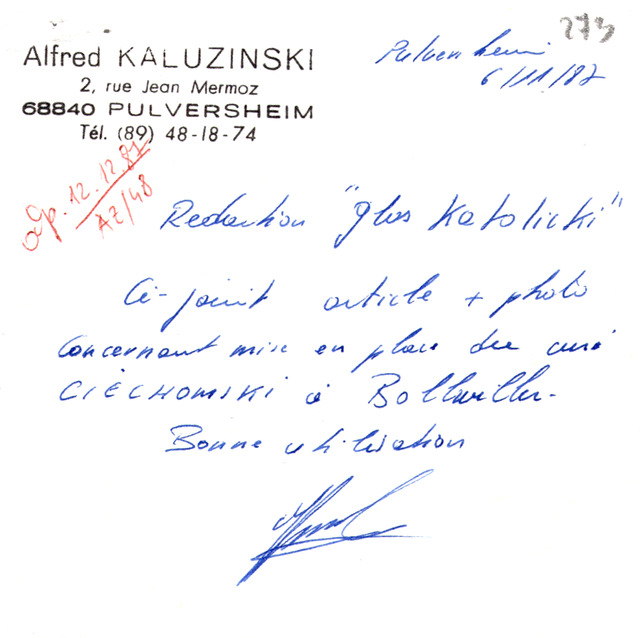 273
Alfred KALUZINSKI
2, rue Jean Mermoz
68840 PULVERSHEIM
Tél. (89) 48-18-74
Pulversheim
6/11/87
12.12.87
AZ/48
Redaction "Glos Katolicki"
Ci-joint article + photo
Concernant mise en place du curé
CIECHOMSKI à Bollwiller.
Bonne utilisation